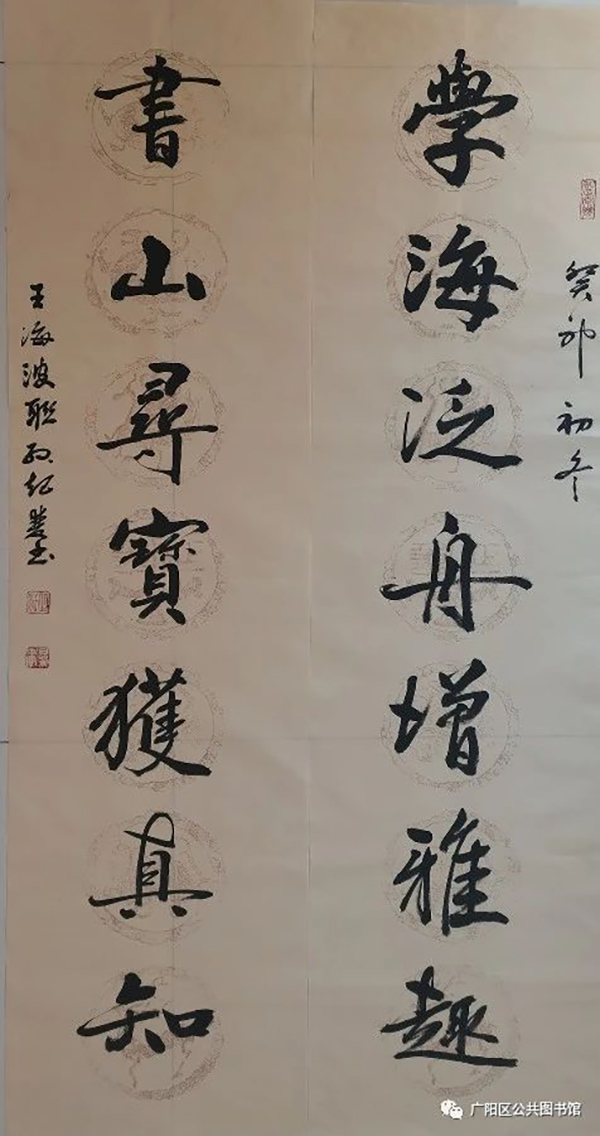 癸卯初冬
學海泛舟增雅趣
書山尋寶獲真知
王海波联 紀 书
广阳区公共图书馆